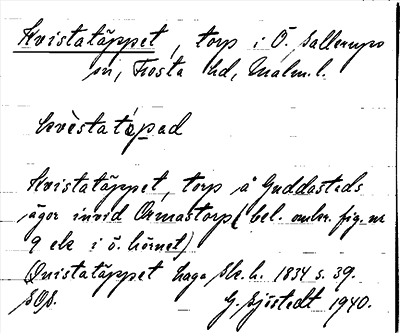 Kvistatäppet, torp i Ö. Sallerups
sn, Frosta hd, Malm.l.
kvèstatápad
Kvistatäppet, torp å Guddastads
ägor invid Ormastorp (bel. omkr. fig. nr
9 ek i ö. hörnet)
(Quistatäppet haga Sk.h. 1834 s. 39.
SOS. G. Sjöstedt 1940.